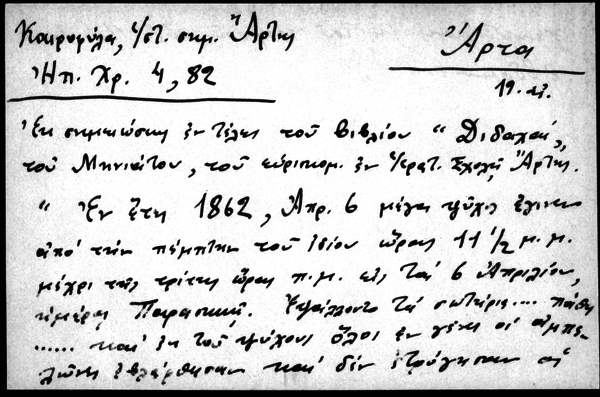 Καιροφύλα, ἱστ. σημ. Ἄρτης
Ἠπ. Χρ. 4, 82
Ἄρτα
19. αἰ.
Ἐκ σημειώσεως ἐν τέλει τοῦ βιβλίου "Διδαχαί„
τοῦ Μηνιάτου, τοῦ εὑρισκομ. ἐν Ἱερατ. Σχολῇ Ἄρτης.
"Ἐν ἔτει 1862, Ἀπρ. 6 μέγα ψῦχος ἔγινεν
ἀπό τήν πέμπτην τοῦ ἰδίου ὥρας 11 1/2 μ.μ.
μέχρι τῆς τρίτης ὥρας π.μ. εἰς τάς 6 Ἀπριλίου,
ἡμέρας Παρασκευῆ. Ἐψάλλοντο τά σωτήρια.... πάθη
...... καί ἐκ τοῦ ψύχους ὅλοι ἐν γένει οἱ ἀμπε-
λῶνες ἐβλάφθησαν καί δέν ἐτρύγησαν οἱ